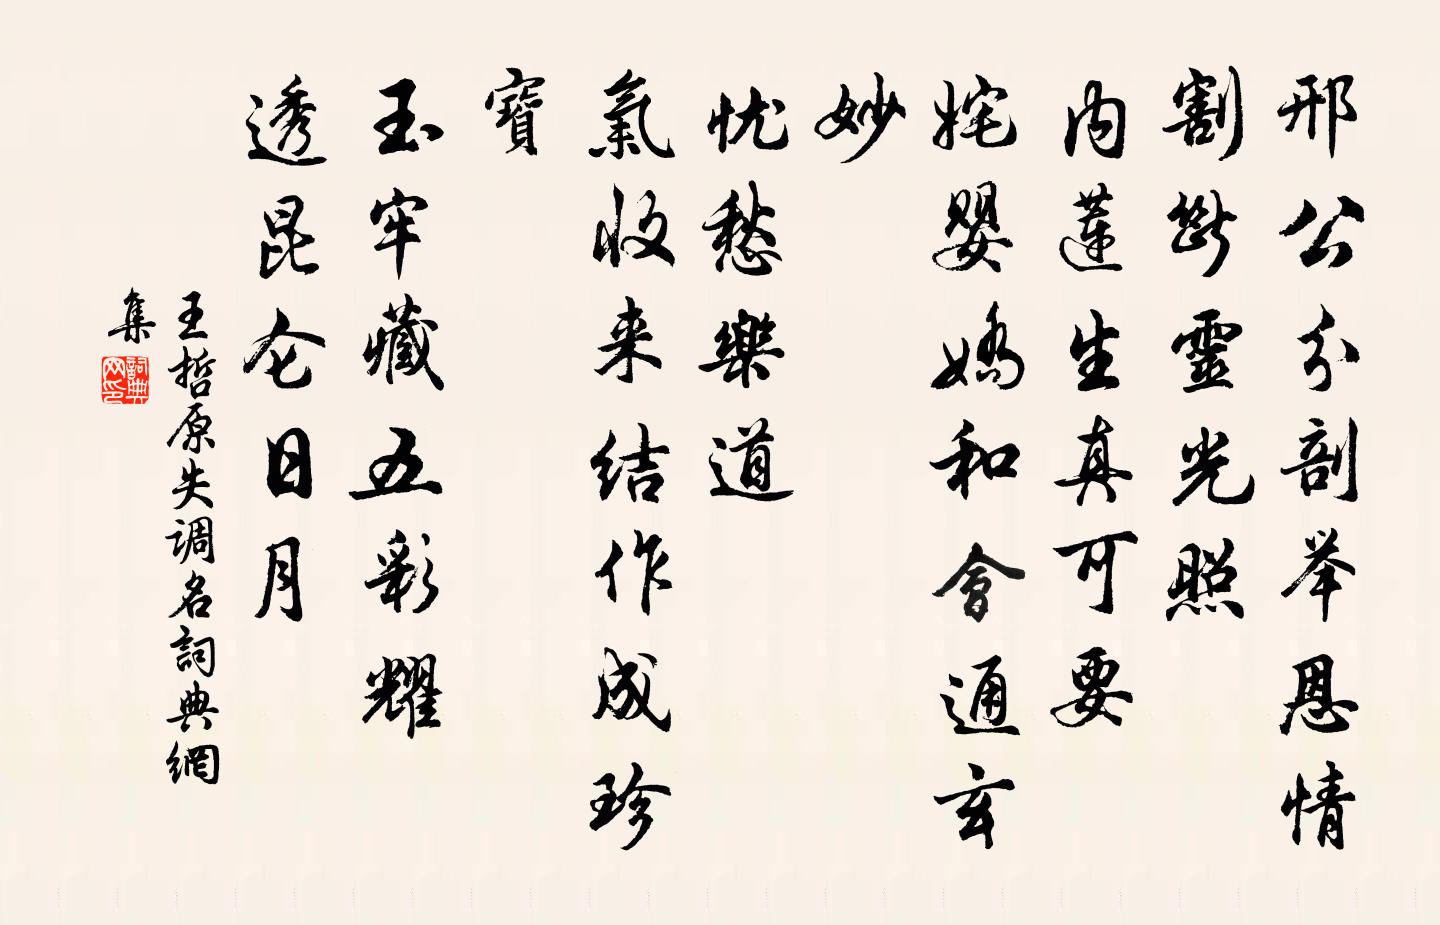 邢公分剖举恩情
割断靈光照
内蓮生真可要
姹嬰嬌和會通玄
妙
忧愁樂道
氣收来结作成珍
寶
玉牢藏五彩耀
透昆仑日月
王哲原失调名詞典網
集
詞典网印